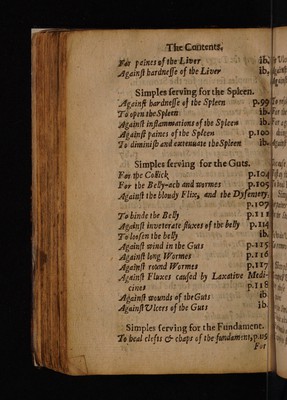 The Contents.
For paines of the Liver ib.
Against hardnesse of the Liver ib.
Simples serving for the Spleen.
Against hardnesse of the Spleen p.99
To open the Spleen ib.
Against inflammations of the Spleen ib.
Against paines of the Spleen p.100
To diminish and extenuate the Spleen ib.
Simples serving for the Guts.
For the Collick p.104
For the Belly-ach and wormes p.105
Against the bloudy Flix, and the Dysentery,
p.107
To binde the Belly p.111
Against inveterate fluxes of the belly p.114
To loosen the belly ib.
Against wind in the Guts p.115
Against long Wormes p.116
Against round Wormes p.117
Against Fluxes caused by Laxative Medi-
cines p.118
Against wounds of the Guts ib
Against Vlcers of the Guts ib.
Simples serving for the Fundament.
To heal clefts & chaps of the fundament, p.119
For